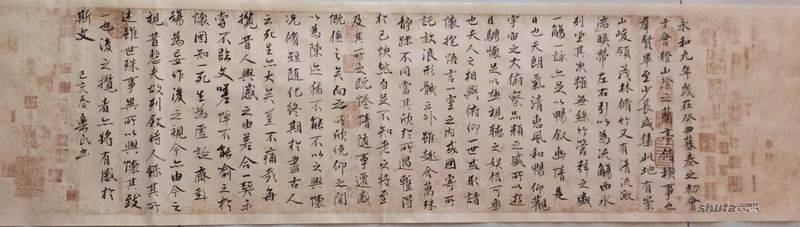 永和九年歲在癸丑暮春之初會
于會稽山陰之蘭亭修禊事也
群賢畢至少長咸集此地有崇
山峻領茂林脩竹又有清流激
湍暎帶左右引以為流觴曲水
列坐其次雖無絲竹管弦之盛
一觴一詠亦足以暢叙幽情是
日也天朗氣清惠風和暢仰觀
宇宙之大俯察品類之盛所以遊
目騁懷足以極視聽之娛信可樂
也夫人之相與俯仰一世或取諸
懷抱悟言一室之内或因寄所
託放浪形骸之外雖趣舍萬殊
静躁不同當其欣於所遇暫得
於己怏然自足不知老之將至
及其所之既惓情隨事遷感
慨係之矣向之所欣俛仰之間
以為陳迹猶不能不以之興懷
况脩短隨化終期於盡古人
云死生亦大矣豈不痛哉每
攬昔人興感之由若合一契未
嘗不臨文嗟悼不能喻之於
懷固知一死生為虛誕齊彭
殤為妄作後之視今亦由今之
視昔悲夫故列叙時人錄其所
述雖世殊事異所以興懷其致
一也後之攬者亦將有感於
斯文 己亥春